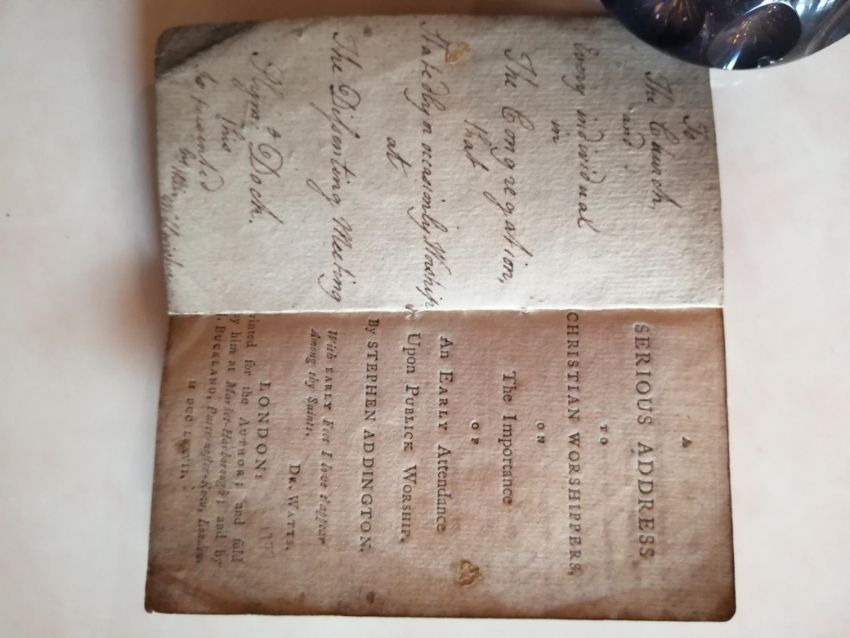 To
The Church,
and
Every individual
in
The Congregation,
that
Statedly or occasionly Worship,
at
The Dissenting Meeting
Plymo. Dock.
this
is presented
by
A
SERIOUS ADDRESS
TO
CHRISTIAN WORSHIPPERS,
ON
The Importance
OF
An EARLY Attendance
UPON PUBLICK WORSHIP.
By STEPHEN ADDINGTON.
With EARLY Feet I love t'appear
Among thy Saints.
DR. WATTS.
LONDON:
inted for the AUTHOR; and sold
y him at Market-Harborough; and by
BUCKLAND, Pater-noster-Row, London.